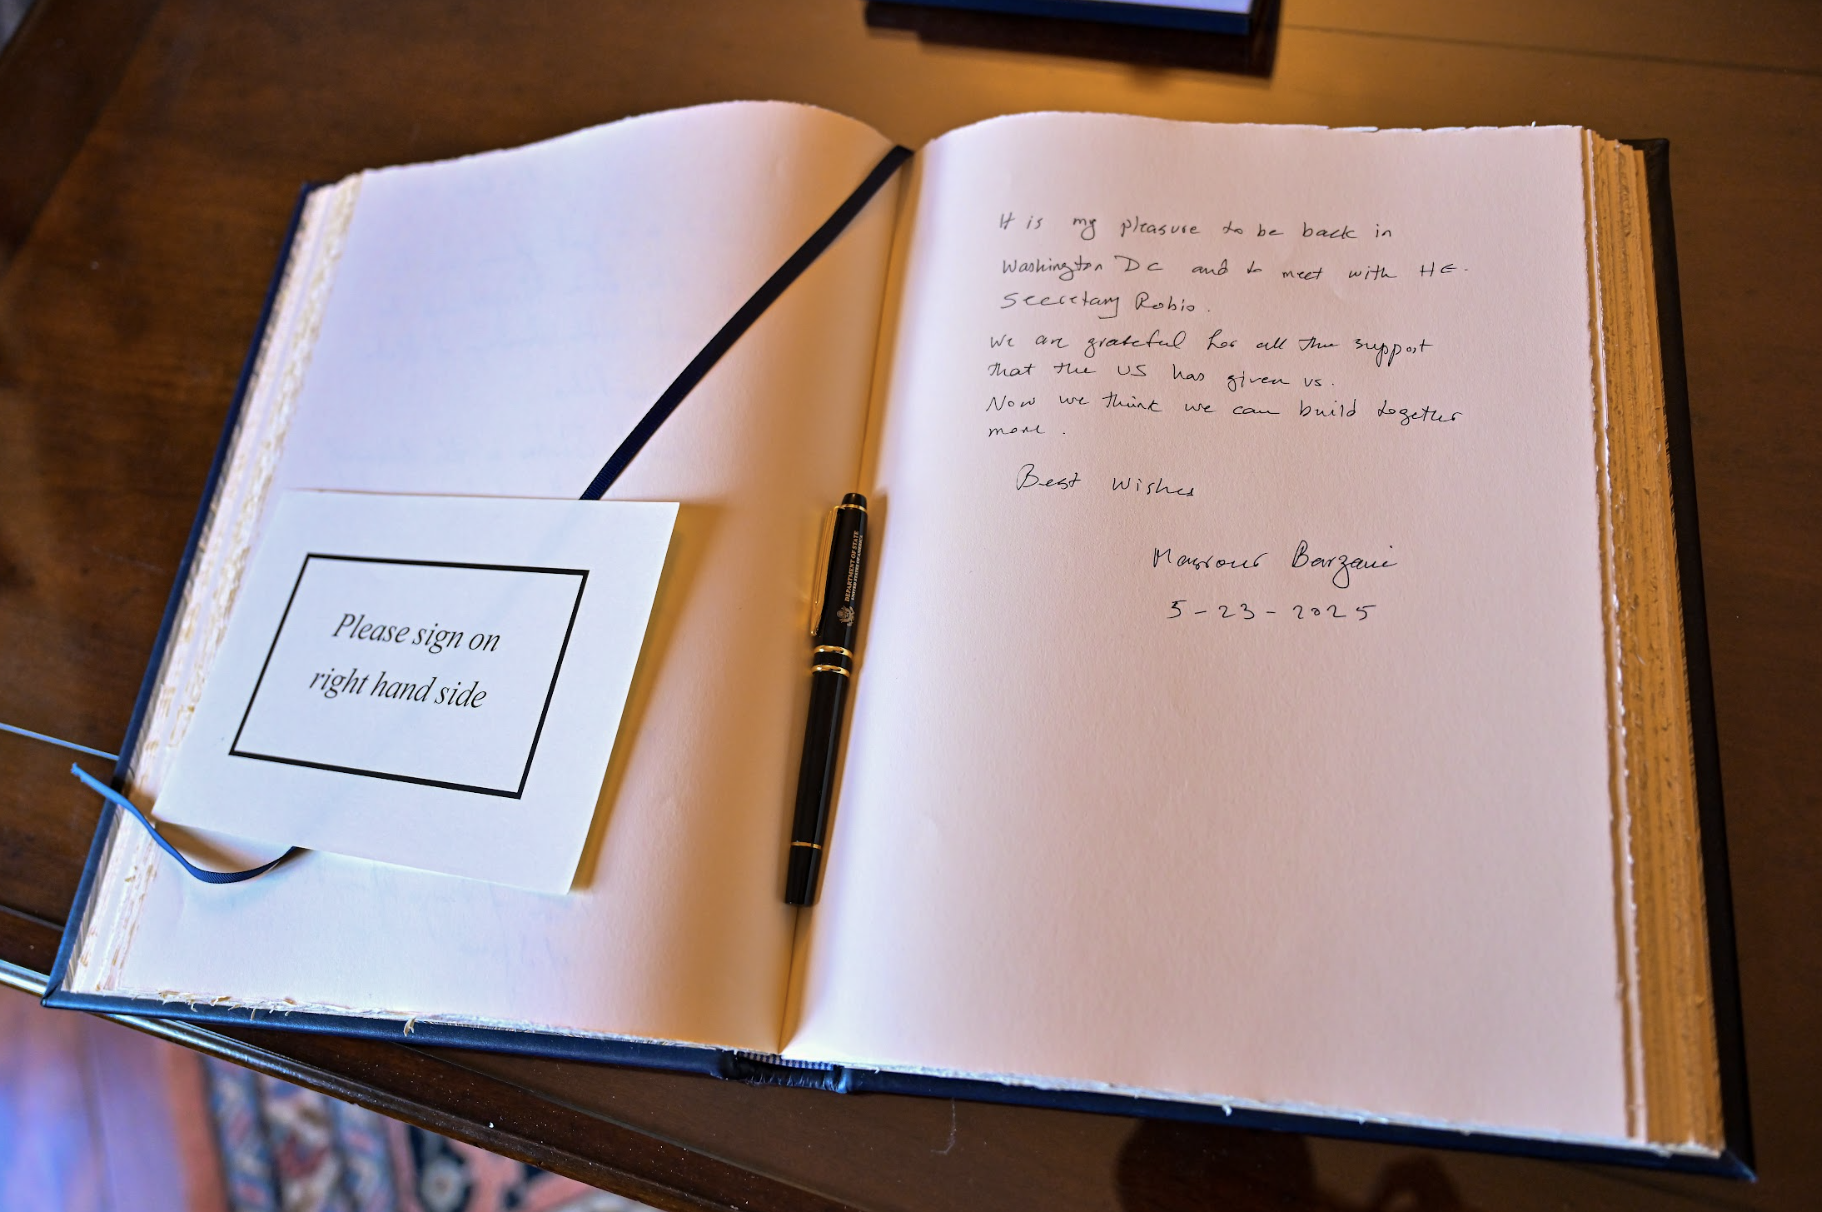 Please sign on
right hand side
DEPARTMENT OF STATE
UNITED STATES OF AMERICA
It is my pleasure to be back in
Washington DC and to meet with HE.
Secretary Rubio.
We are grateful for all the support
that the US has given us.
Now we think we can build together
more.
Best Wishes
Masrour Barzani
5-23-2025